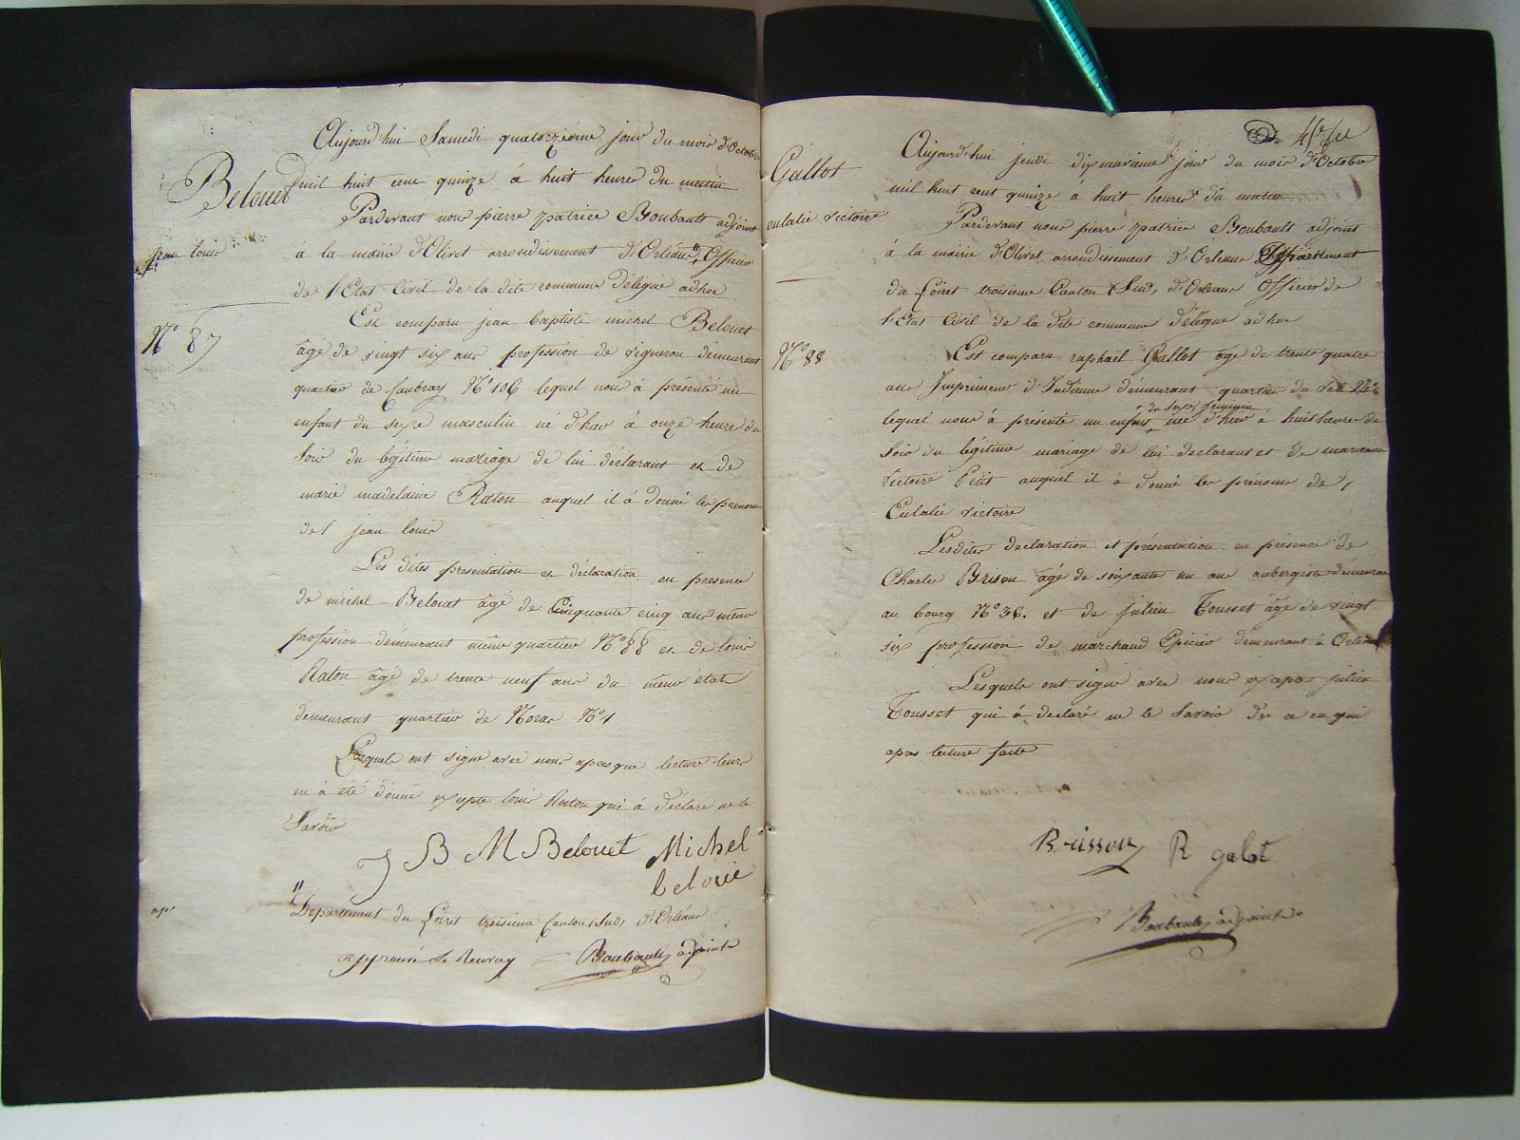 Belouet
jean louis
N° 87
Aujourd'hui Samedi quatorzieme jour du mois d'Octobre
mil huit cent quinze à huit heures du matin
Pardevant nous pierre patrice Boubault adjoint
à la mairie d'Olivet arrondissement d'Orléans " Officier
de l'Etat Civil de la dite commune délégué adhoc
Est comparu jean baptiste michel Belouet
âgé de vingt six ans profession de vigneron demeurant
quartier de Caubray N° 106 lequel nous à présenté un
enfant du sexe masculin né d'hier à onze heures du
soir du légitime mariage de lui déclarant et de
marie madelaine Raton auquel il à donné les prenoms
de jean louis
Les dites presentation et déclaration en presence
de michel Belouet âgé de Cinquante cinq ans même
profession demeurant même quartier N° 88 et de louis
Raton âgé de trente neuf ans du même état
demeurant quartier de Noras N° 1
Lesquels ont signé avec nous apres que lecture leur
en à été donné excepté louis Raton qui à déclaré ne le
Savoir
J B M Belouet Michel
belouet
" Departement du Loiret troisieme Canton, Sud, d'Orléans
approuvé le Renvoy Boubault adjoint
Gallot
eulalie victoire
N° 88
Aujourd'hui jeudi dix neuvieme jour du mois d'Octobre
mil huit cent quinze à huit heures du matin
Pardevant nous pierre patrice Boubault adjoint
à la mairie d'Olivet arrondissement d'Orléans Département
du Loiret troisieme Canton, Sud, d'Orléans Officier de
l'Etat Civil de la dite commune délégué adhoc
Est comparu raphaël Gallot âgé de trente quatre
ans Imprimeur d'Indienne demeurant quartier du
du sexe féminin
lequel nous à présenté un enfant née d'hier à huit heures du
soir du légitime mariage de lui declarant et de marianne
victoire Petit auquel il à donné les prenoms de
Eulalie victoire
Lesdites declaration et présentation en présence de
Charles Brison âgé de soixante un ans aubergiste demeurant
au bourg N° 36. et de julien Tousset âgé de vingt
six profession de marchand Epicier demeurant à Orléans
Lesquels ont signé avec nous excepté julien
Tousset qui à declaré ne le Savoir de ce enquis
apres lecture faite
Brisson R galot
Boubault adjoint